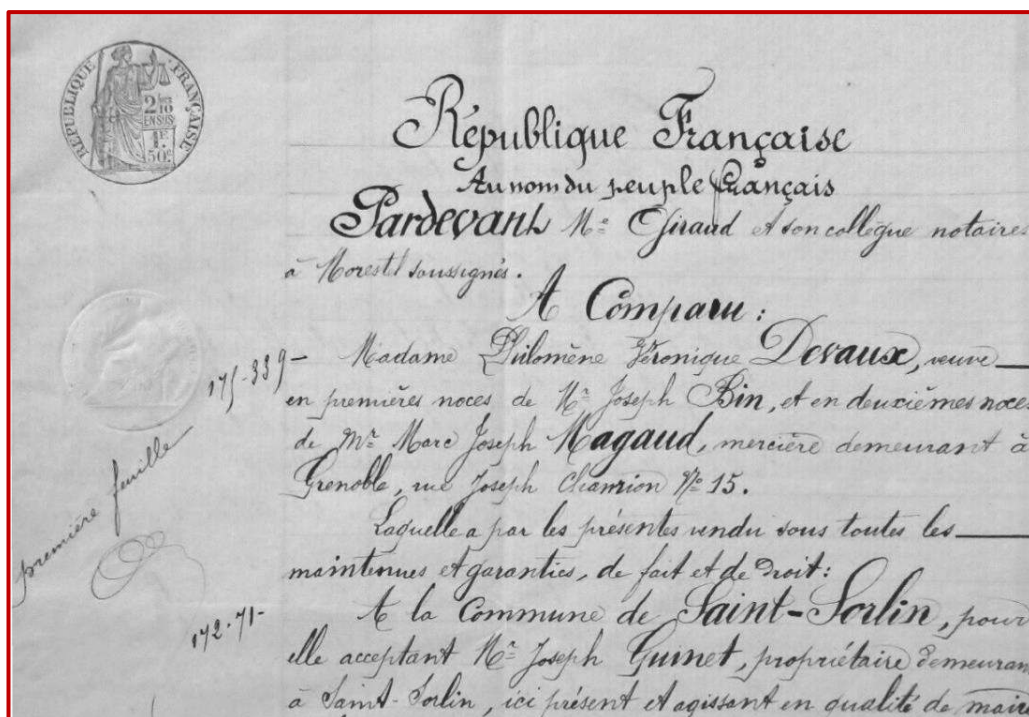 RÉPUBLIQUE FRANÇAISE
2/10
EN SUS
1F
50c
République Française
Au nom du peuple français
Pardevant Me Giraud et son collègue notaires
à Morestel soussignés.
A Comparu :
175-339-
Madame Philomène Véronique Devaux, veuve
en premières noces de Mr Joseph Bin, et en deuxièmes noces
de Mr Marc Joseph Magaud, mercière demeurant à
Grenoble, rue Joseph Chanrion No 15.
première feuille
Laquelle a par les présentes vendu sous toutes les
maintenues et garanties, de fait et de droit :
172-71-
A la Commune de Saint-Sorlin, pour
elle acceptant Mr Joseph Guinet, propriétaire demeuran
à Saint-Sorlin, ici présent et agissant en qualité de maire